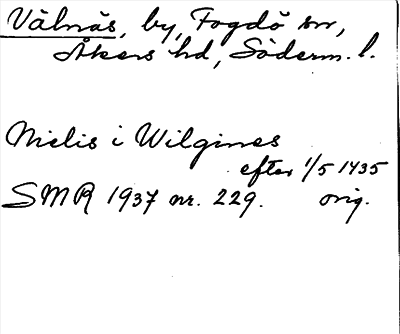 Välnäs, by, Fogdö sn,
Åkers hd, Söderm. l.
Nielis i Wilgines
efter 1/5 1435
SMR 1937 nr. 229. orig.